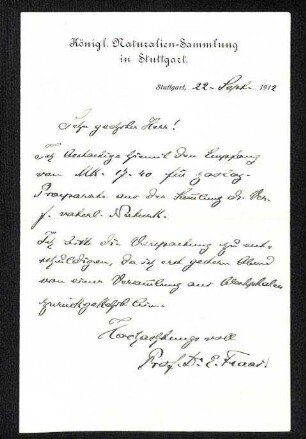 Königl. Naturalien-Sammlung
in Stuttgart.
Stuttgart, 22. Sept. 1912
Sehr geehrter Herr!
Ich bestätige hiemit den Empfang
von Mk. 17.40 für
Praeparate aus der Sammlung des Ver.
f. vaterl. Naturk.
Ich bitte die Verspaetung zu ent-
schuldigen, da ich erst gestern Abend
von einer aus
zurückgekehrt bin.
Hochachtungsvoll
Prof. Dr. E. Fraas.